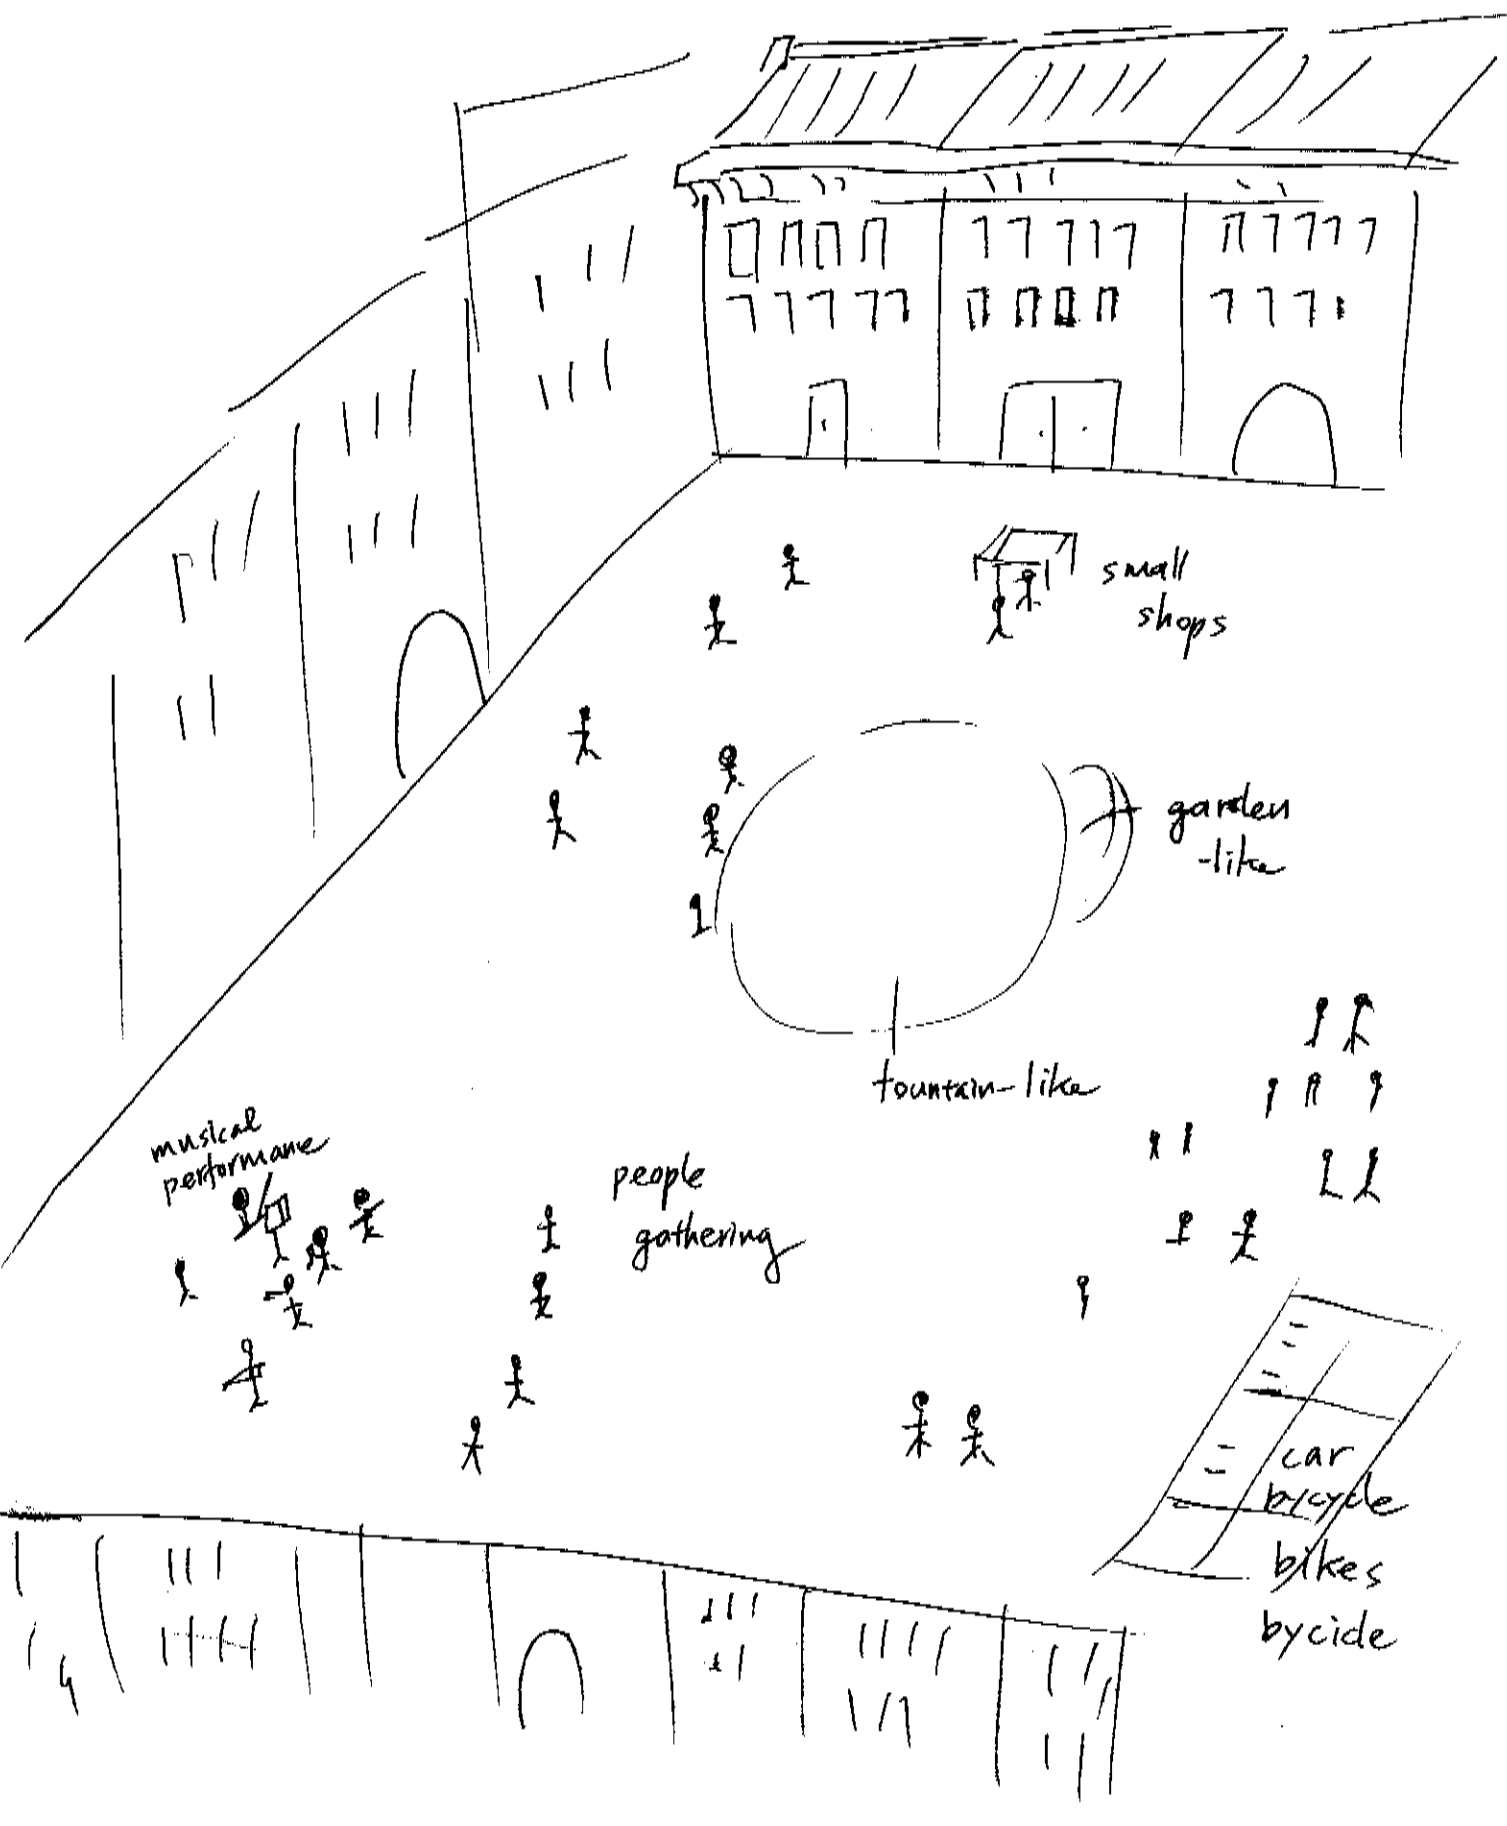 small
shops
garden
-like
fountain-like
musical
performane
people
gathering
car
bycycle
bikes
bycicle